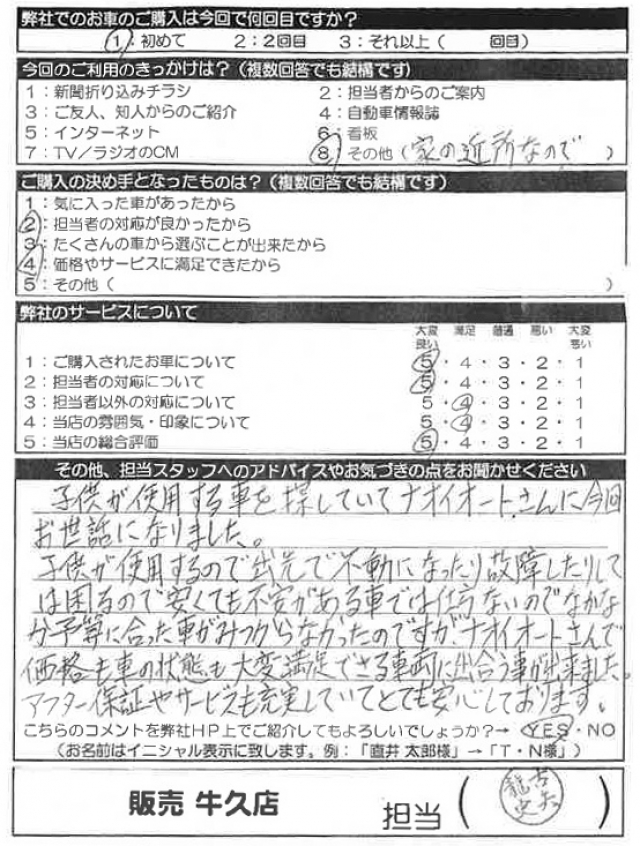 弊社でのお車のご購入は今回で何回目ですか?
1:初めて 2:2回目 3:それ以上( 回目)
今回のご利用のきっかけは?(複数回答でも結構です)
1:新聞折り込みチラシ 2:担当者からのご案内
3:ご友人、知人からのご紹介 4:自動車情報誌
5:インターネット 6:看板
7:TV/ラジオのCM 8:その他(家の近所なので)
ご購入の決め手となったものは?(複数回答でも結構です)
1:気に入った車があったから
2:担当者の対応が良かったから
3:たくさんの車から選ぶことが出来たから
4:価格やサービスに満足できたから
5:その他( )
弊社のサービスについて
大変良い 満足 普通 悪い 大変悪い
1:ご購入されたお車について 5・4・3・2・1
2:担当者の対応について 5・4・3・2・1
3:担当者以外の対応について 5・4・3・2・1
4:当店の雰囲気・印象について 5・4・3・2・1
5:当店の総合評価 5・4・3・2・1
その他、担当スタッフへのアドバイスやお気づきの点をお聞かせください
子供が使用する車を探していてナオイオートさんに今回
お世話になりました。
子供が使用するので出先で不動になったり故障したりして
は困るので安くても不安がある車では仕方ないのでなかな
か予算に合った車がみつからなかったのですが、ナオイオートさんで
価格も車の状態も大変満足できる車両に出合う事が出来ました。
アフター保証やサービスも充実していてとても安心しております。
こちらのコメントを弊社HP上でご紹介してもよろしいでしょうか?→ YES・NO
(お名前はイニシャル表示に致します。例:「直井 太郎様」→「T・N様」)
販売 牛久店 担当( )